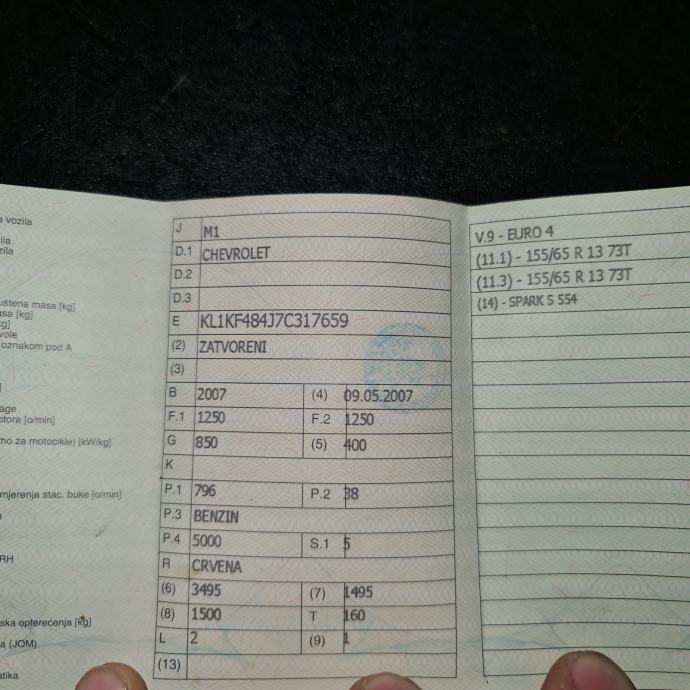 a vozila
ila
zila
uštena masa [kg]
asa [kg]
kg]
vole
oznakom pod A
l
age
otora [o/min]
mo za motocikle) [kW/kg]
mjerenja stac. buke [o/min]
RH
ska opterećenja [kg]
a (JOM)
atika
J M1
D.1 CHEVROLET
D.2
D.3
E KL1KF484J7C317659
(2) ZATVORENI
(3)
B 2007 (4) 09.05.2007
F.1 1250 F.2 1250
G 850 (5) 400
K
P.1 796 P.2 38
P.3 BENZIN
P.4 5000 S.1 5
R CRVENA
(6) 3495 (7) 1495
(8) 1500 T 160
L 2 (9) 1
(13)
V.9 - EURO 4
(11.1) - 155/65 R 13 73T
(11.3) - 155/65 R 13 73T
(14) - SPARK S 554